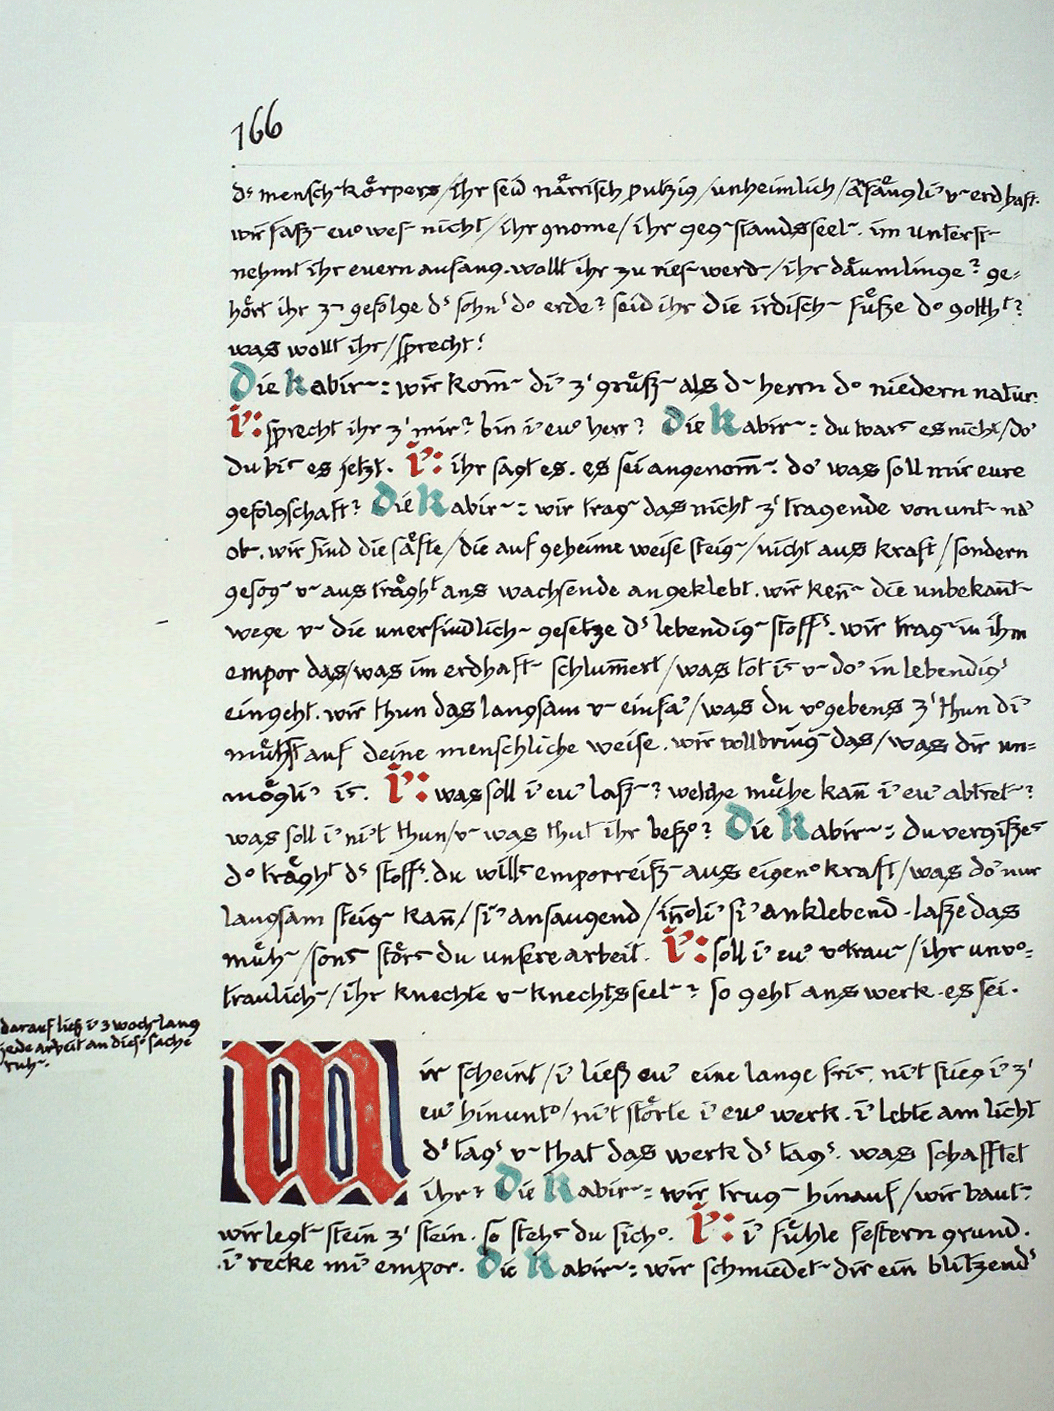 166
dˢ mensch~körpers/ihr seid närrisch putzig/unheimlich/āfänglī v~ erdhaft.
wir faß~ euᵒ weſ nicht/ihr gnome/ihr geg~standsseel~. im unterst~
nehmt ihr euern anfang. wollt ihr zu riesf werd~/ihr däumlinge? ge=
hört ihr z~ gefolge dˢ sohnˢ dᵒ erde? seid ihr die irdisch~ füße dᵒ gotthᵗ?
was wollt ihr/sprecht!
Die Kabir~: wir kom̄~ di' z' grüß~ als d~ herrn dᵒ niedern natur.
i': sprecht ihr z' mir? bin i' euᵒ herr? Die Kabir~: du warˢ es nicht/do'
du biˢ es jetzt. i': ihr sagt es. es sei angenom̄~. do' was soll mir eure
gefolgschaft? Die Kabir~: wir trag~ das nicht z' tragende von unt~ na'
ob~. wir sind die säfte/die auf geheime weise steig~/nicht aus kraft/sondern
gesog~ v~ aus träghᵗ ans wachsende angeklebt. wir ken̄~ die unbekan̄t~
wege v~ die unerfindlich~ gesetze dˢ lebendig~ stoffˢ. wir trag~ in ihm
empor das/was im erdhaft~ schlum̄ert/was tot iˢ v~ do' in lebendigˢ
eingeht. wir thun das langsam v~ einfa'/was du vᵒgebens z' thun di'
mühst auf deine menschliche weise. wir vollbring~ das/was dir un=
mögli' iˢ. i': was soll i' eu' laß~? welche mühe kan̄ i' eu' abtret~?
was soll i' ni't thun/v~ was thut ihr beßᵒ? Die Kabir~: du vergißeˢ
dᵒ träghᵗ dˢ stoffˢ. du willˢ emporreiß~ aus eigenᵒ kraft/was do' nur
langsam steig~ kan̄/si' ansaugend/in̄ᵒli' si' anklebend. laße das
müh~/sonˢ störˢ du unsere arbeit. i': soll i' eu' vᵒtrau~/ihr unvᵒ=
traulich~/ihr knechte v~ knechtsseel~? so geht ans werk. es sei.
darauf ließ i' 3 woch~ lang
jede arbeit an diesᵒ sache
ruh~.
Mir scheint/i' ließ eu' eine lange friˢ. ni't stieg i' z'
eu' hinuntᵒ/ni't störte i' euᵒ werk. i' lebte am licht
dˢ tagˢ v~ that das werk dˢ tagˢ. was schafftet
ihr? Die Kabir~: wir trug~ hinauf/wir baut~.
wir legt~ stein z' stein. so stehˢ du sichᵒ. i': i' fühle festern grund.
i' recke mi' empor. Die Kabir~: wir schmiedet~ dir ein blitzendˢ